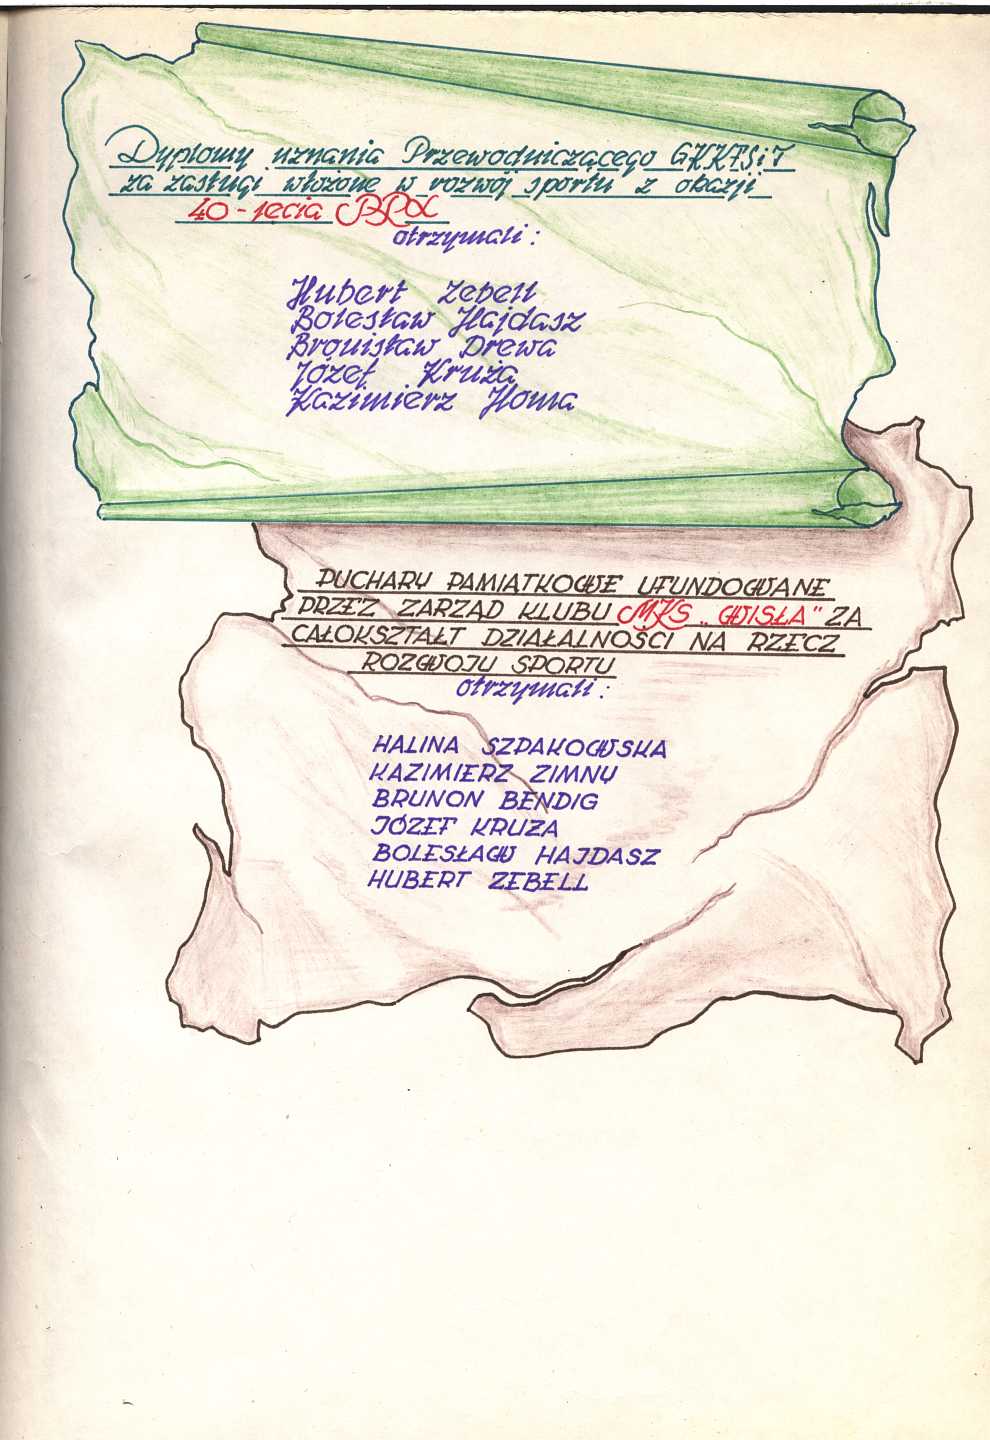 Dyplomy uznania Przewodniczącego GKKFSiT
za zasługi włożone w rozwój sportu z okazji
40-lecia PRL
otrzymali:
Hubert Zebell
Bolesław Hajdasz
Bronisław Drewa
Józef Kruża
Kazimierz Homa
PUCHARY PAMIATKOWE UFUNDOWANE
PRZEZ ZARZĄD KLUBU MKS „WISŁA" ZA
CAŁOKSZTAŁT DZIAŁALNOŚCI NA RZECZ
ROZWOJU SPORTU
otrzymali:
HALINA SZPAKOWSKA
KAZIMIERZ ZIMNY
BRUNON BENDIG
JÓZEF KRUZA
BOLESŁAW HAJDASZ
HUBERT ZEBELL